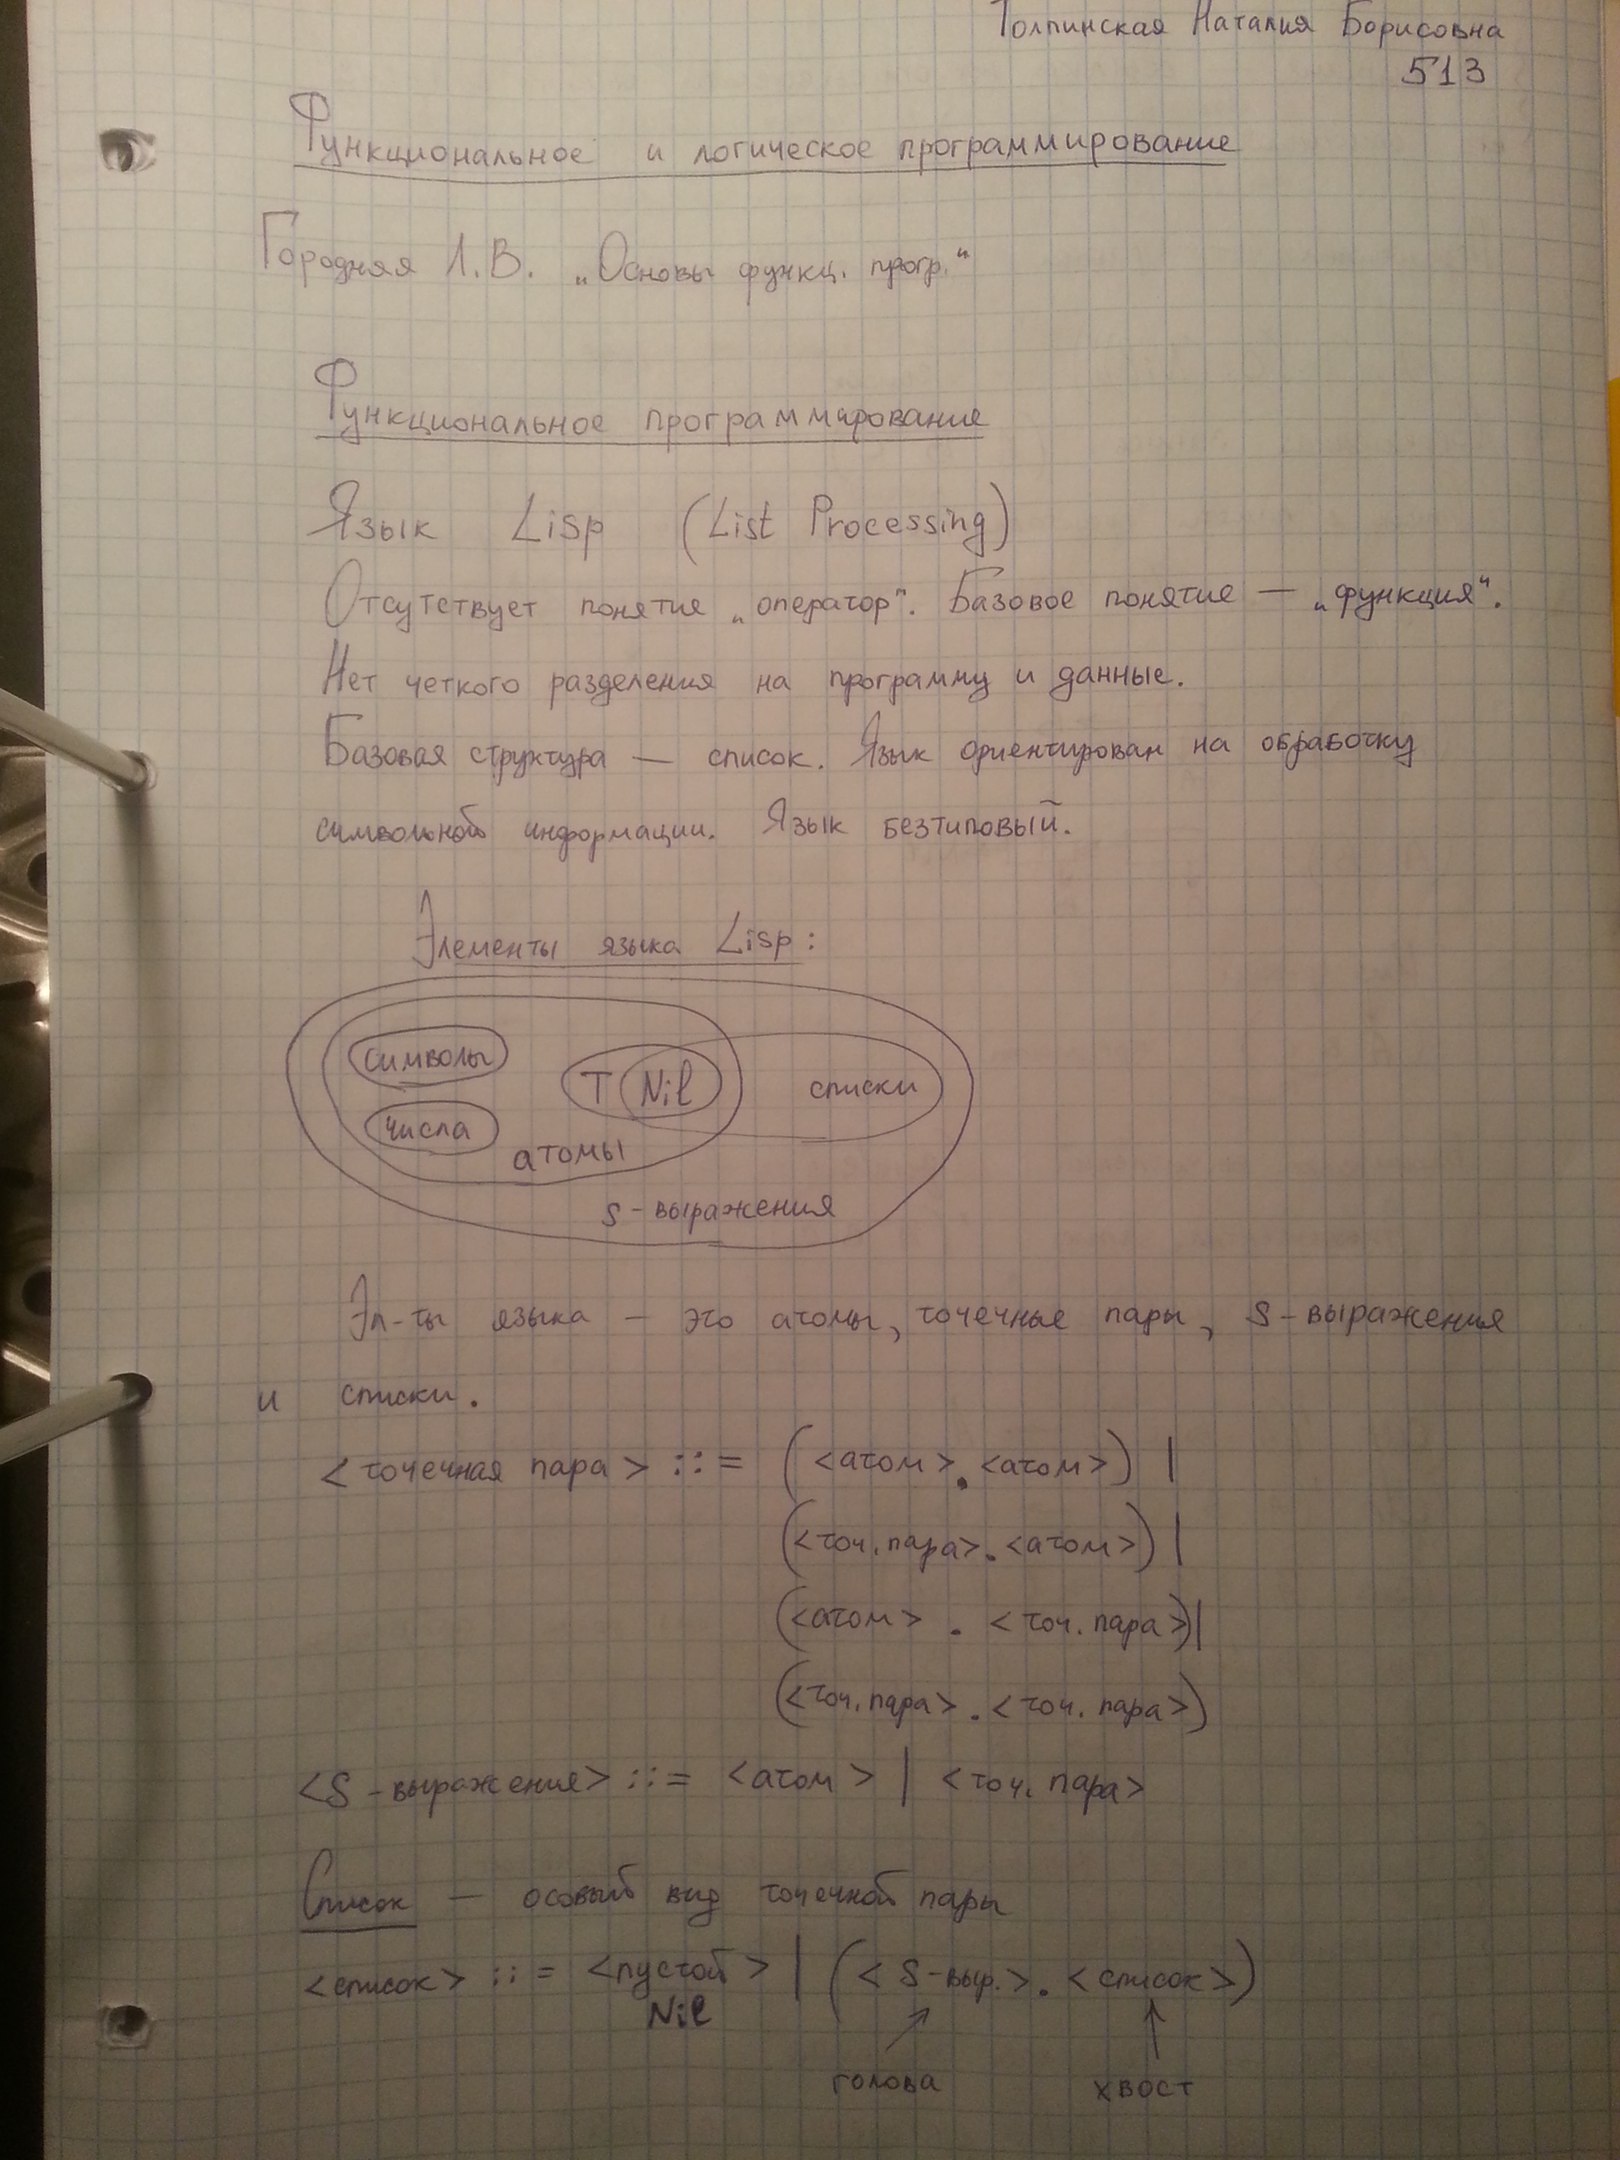 Толпинская Наталия Борисовна
513
Функциональное и логическое программирование
Городняя Л.В. „Основы функц. прогр."
Функциональное программирование
Язык Lisp (List Processing)
Отсутствует понятие „оператор". Базовое понятие — „функция".
Нет четкого разделения на программу и данные.
Базовая структура — список. Язык ориентирован на обработку
символьной информации. Язык безтиповый.
Элементы языка Lisp:
символы
T Nil
списки
числа
атомы
S-выражения
Эл-ты языка — это атомы, точечные пары, S-выражения
и списки.
<точечная пара> ::= (<атом>.<атом>) |
(<точ.пара>.<атом>) |
(<атом> . <точ.пара>)|
(<точ.пара>.<точ.пара>)
<S-выражение> ::= <атом> | <точ. пара>
Список — особый вид точечной пары
<список> ::= <пустой> | (<S-выр.>.<список>)
Nil
голова хвост